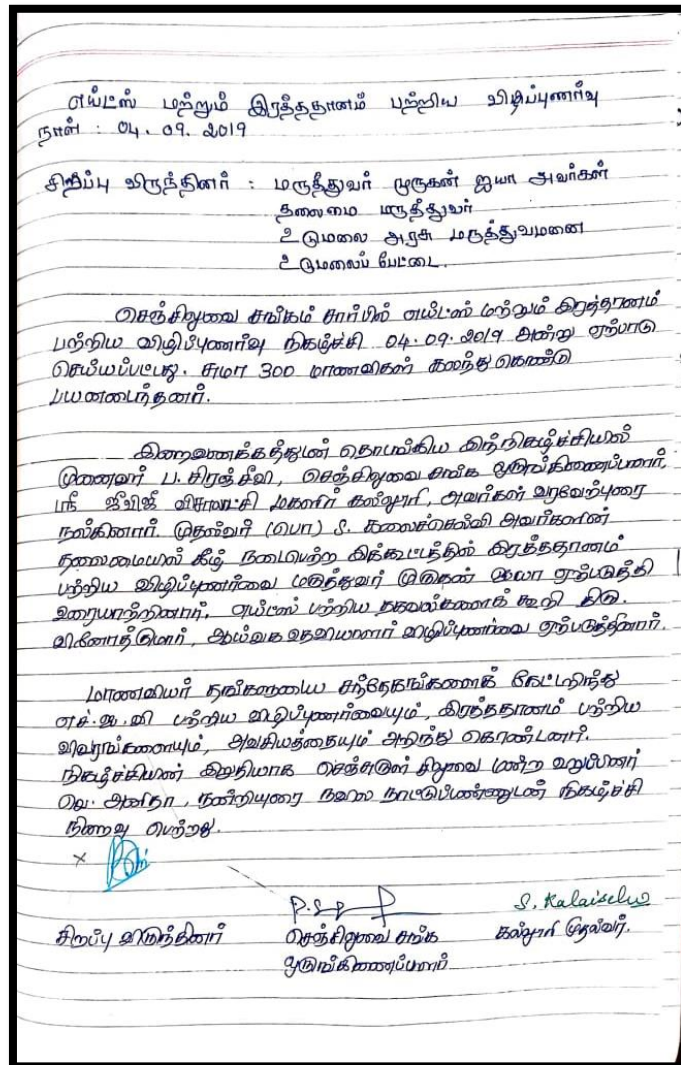 எய்ட்ஸ் மற்றும் இரத்ததானம் பற்றிய விழிப்புணர்வு
நாள் : 04. 09. 2019
சிறப்பு விருந்தினர் : மருத்துவர் முருகன் ஐயா அவர்கள்
தலைமை மருத்துவர்
உடுமலை அரசு மருத்துவமனை
உடுமலைப் பேட்டை.
செஞ்சிலுவை சங்கம் சார்பில் எய்ட்ஸ் மற்றும் இரத்தானம்
பற்றிய விழிப்புணர்வு நிகழ்ச்சி 04. 09. 2019 அன்று ஏற்பாடு
செய்யப்பட்டது. சுமா 300 மாணவிகள் கலந்து கொண்டு
பயனடைந்தனர்.
இறைவணக்கத்துடன் தொடங்கிய இந்நிகழ்ச்சியில்
முனைவர் ப. சிரஞ்சீவி, செஞ்சிலுவை சங்க ஒருங்கிணைப்பாளர்,
ஸ்ரீ ஜீவிஜி விசாலாட்சி மகளிர் கல்லூரி, அவர்கள் வரவேற்புரை
நல்கினார். முதல்வர் (பொ) S. கலைச்செல்வி அவர்களின்
தலைமையில் கீழ் நடைபெற்ற இக்கூட்டத்தில் இரத்ததானம்
பற்றிய விழிப்புணர்வை மருத்துவர் முருகன் ஐயா ஏற்படுத்தி
உரையாற்றினார். எய்ட்ஸ் பற்றிய தகவல்களைக் கூறி திரு.
வினோத்குமார், ஆய்வக உதவியாளர் விழிப்புணர்வை ஏற்படுத்தினார்.
மாணவியர் தங்களுடைய சந்தேகங்களைக் கேட்டறிந்து
எச்.ஐ.வி பற்றிய விழிப்புணர்வையும், இரத்ததானம் பற்றிய
விவரங்களையும், அவசியத்தையும் அறிந்து கொண்டனர்.
நிகழ்ச்சியின் இறுதியாக செஞ்சுருள் சிலுவை மன்ற உறுப்பினர்
வெ. அனிதா, நன்றியுரை நவில நாட்டுப்பண்ணுடன் நிகழ்ச்சி
நிறைவு பெற்றது.
S. Kalaiselvi
சிறப்பு விருந்தினர் செஞ்சிலுவை சங்க கல்லூரி முதல்வர்.
ஒருங்கிணைப்பாளர்